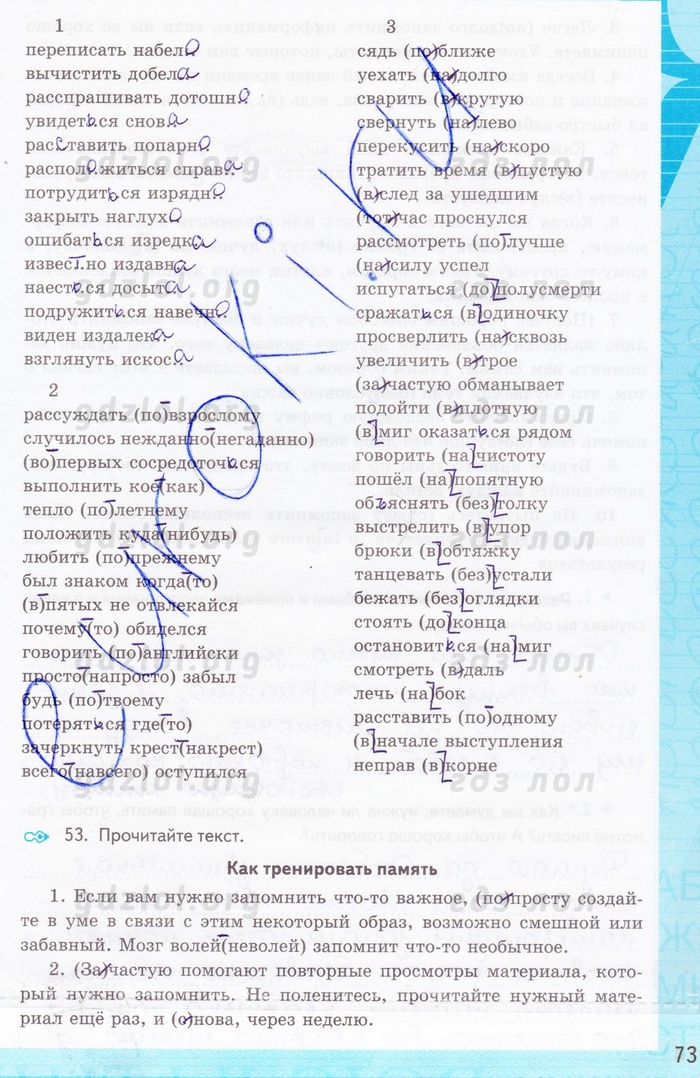 1
переписать набело
вычистить добела
расспрашивать дотошно
увидеться снова
расставить попарно
расположиться справа
потрудиться изрядно
закрыть наглухо
ошибаться изредка
известно издавна
наесться досыта
подружиться навечно
виден издалека
взглянуть искоса
2
рассуждать (по)взрослому
случилось нежданно(негаданно)
(во)первых сосредоточься
выполнить кое(как)
тепло (по)летнему
положить куда(нибудь)
любить (по)прежнему
был знаком когда(то)
(в)пятых не отвлекайся
почему(то) обиделся
говорить (по)английски
просто(напросто) забыл
будь (по)твоему
потеряться где(то)
зачеркнуть крест(накрест)
всего(навсего) оступился
3
сядь (по)ближе
уехать (на)долго
сварить (в)крутую
свернуть (на)лево
перекусить (на)скоро
тратить время (в)пустую
(в)след за ушедшим
(тот)час проснулся
рассмотреть (по)лучше
(на)силу успел
испугаться (до)полусмерти
сражаться (в)одиночку
просверлить (на)сквозь
увеличить (в)трое
(за)частую обманывает
подойти (в)плотную
(в)миг оказаться рядом
говорить (на)чистоту
пошёл (на)попятную
объяснять (без)толку
выстрелить (в)упор
брюки (в)обтяжку
танцевать (без)устали
бежать (без)оглядки
стоять (до)конца
остановиться (на)миг
смотреть (в)даль
лечь (на)бок
расставить (по)одному
(в)начале выступления
неправ (в)корне
53. Прочитайте текст.
Как тренировать память
1. Если вам нужно запомнить что-то важное, (по)просту создай-
те в уме в связи с этим некоторый образ, возможно смешной или
забавный. Мозг волей(неволей) запомнит что-то необычное.
2. (За)частую помогают повторные просмотры материала, кото-
рый нужно запомнить. Не поленитесь, прочитайте нужный мате-
риал ещё раз, и (с)нова, через неделю.
73
gdzlol.org
гдз лол